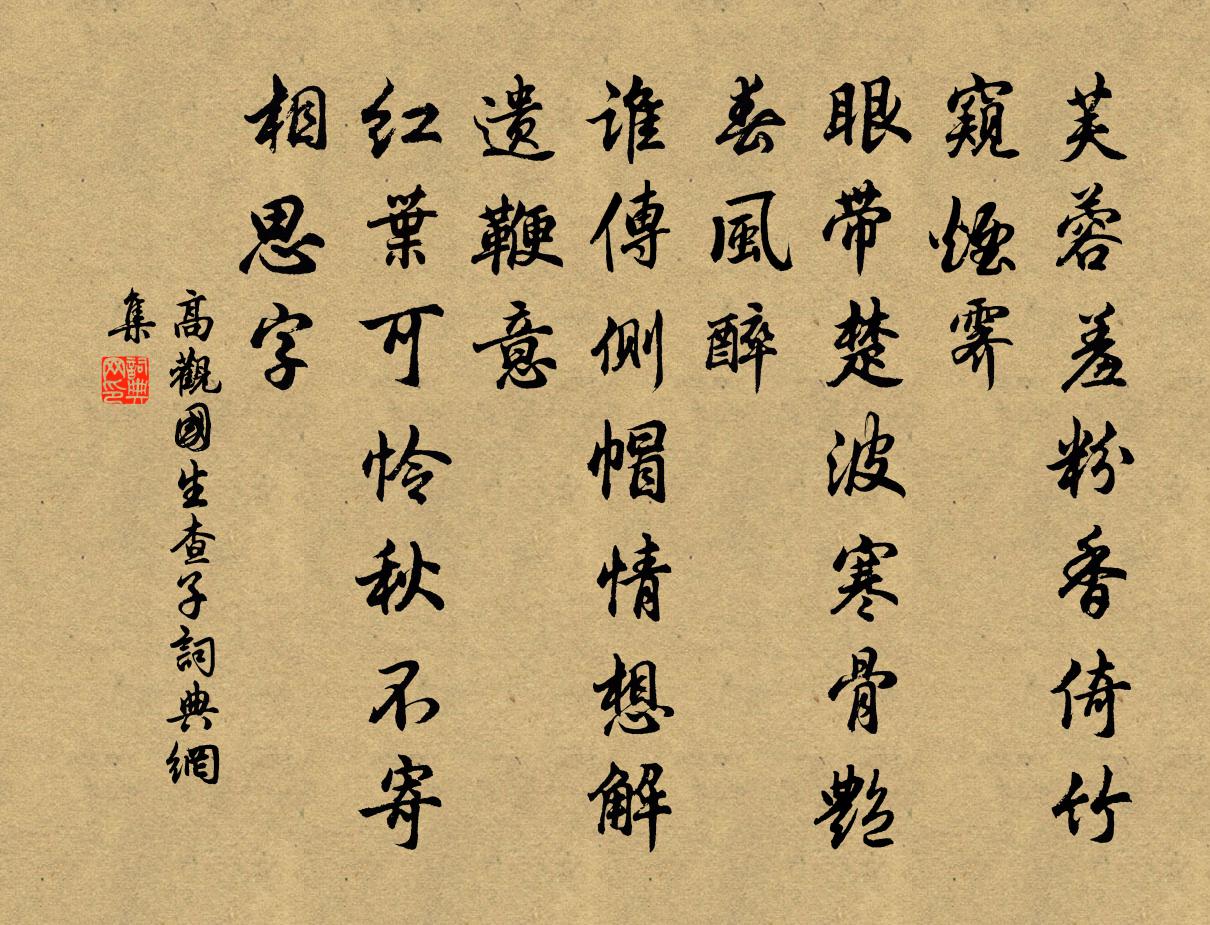 芙蓉羞粉香倚竹
窺煙霽
眼帶楚波寒骨艷
春風醉
誰傳側帽情想解
遺鞭意
紅葉可憐秋不寄
相思字
高觀國生查子詞典網
集
詞典网印